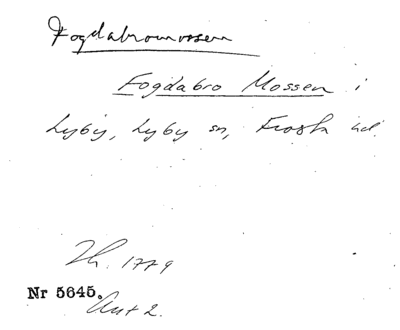 Fogdabromossen
Fogdabro Mossen i
Lyby, Lyby sn, Frosta hd.
Lh. 1779
Nr 5645.
Akt 2.